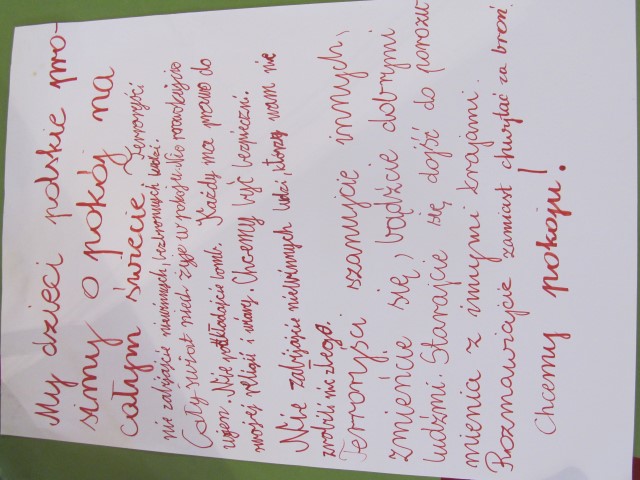 My dzieci polskie pro-
simy o pokój na
całym świecie. Terroryści
nie zabijajcie niewinnych, bezbronnych ludzi.
Cały świat niech żyje w pokoju. Nie prowadźcie
wojen. Nie podkładajcie bomb. Każdy ma prawo do
swojej religii i wiary. Chcemy być bezpieczni.
Nie zabijajcie niewinnych ludzi, którzy wam nic
zrobili nic złego.
Terroryści szanujcie innych,
zmieńcie się, bądźcie dobrymi
ludźmi. Starajcie się dojść do porozu-
mienia z innymi krajami.
Rozmawiajcie zamiast chwytać za broń.
Chcemy pokoju!